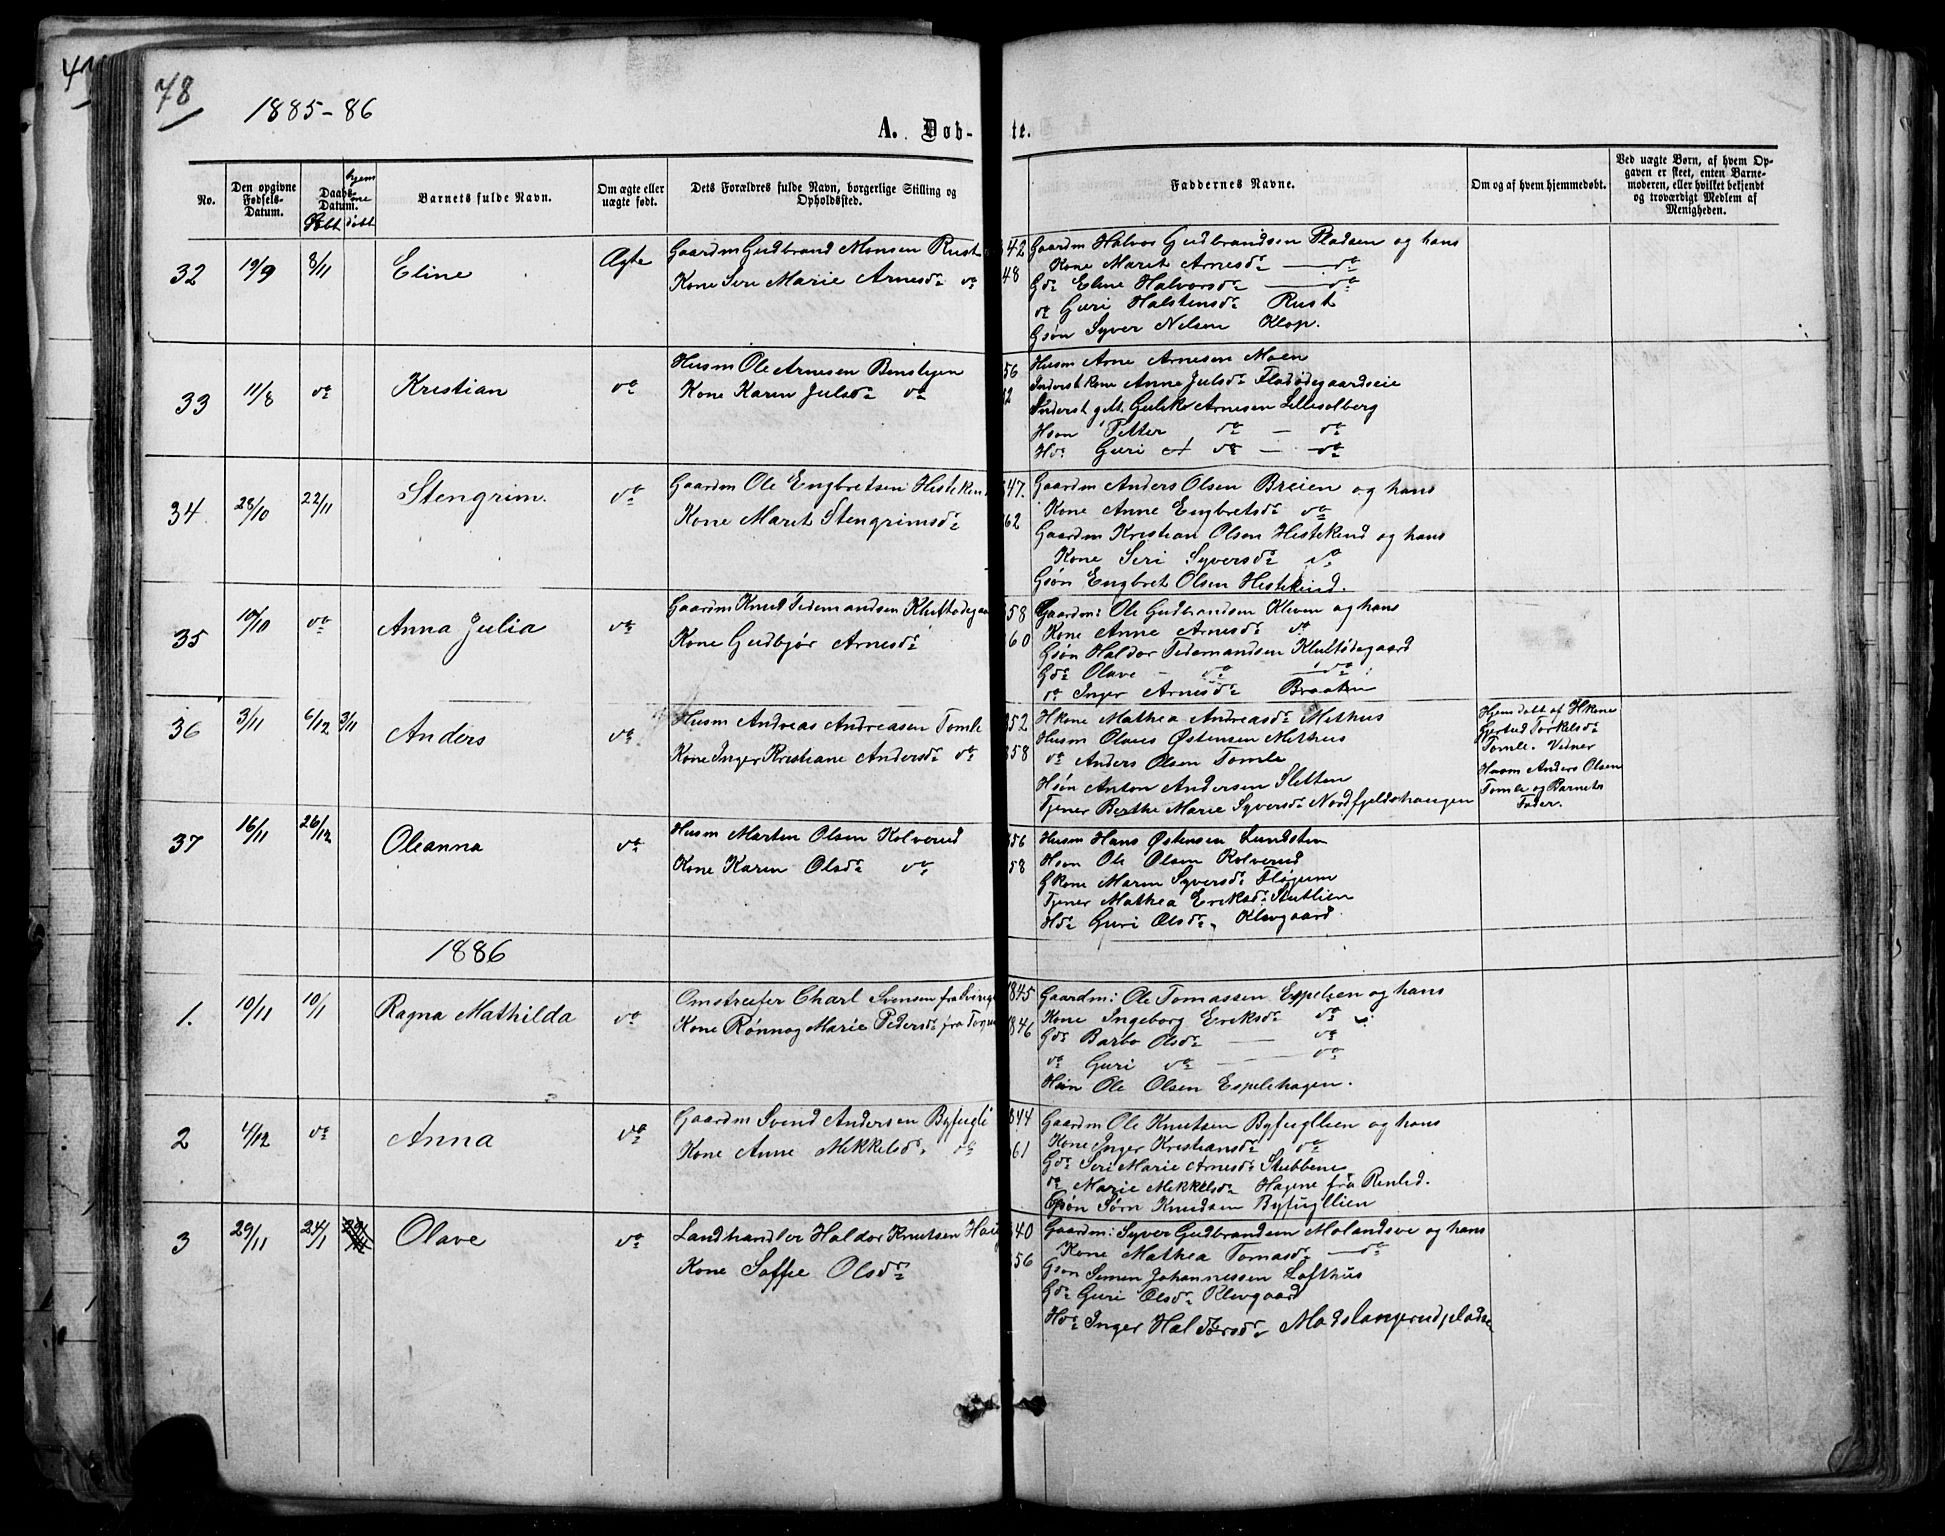 78
1885-86
A. Døb-
te.
No.
Den opgivne Fødsels-Datum.
Daabs-Datum.
Døbt
hjemmedøbt
Barnets fulde Navn.
Om ægte eller uægte født.
Dets Forældres fulde Navn, borgerlige Stilling og Opholdssted.
Faddernes Navne.
Om og af hvem hjemmedøbt.
Ved uægte Børn, af hvem Opgaven er skeet, enten Barnemoderen, eller hvilket bekjendt og troværdigt Medlem af Menigheden.
32 19/9 8/11 Eline Ægte
Gaardm Gudbrand Monsen Rust
Kone Siri Marie Arnesdr do
842
48
Gaardm Halvor Gudbrandsen Pladsen og hans
Kone Marit Arnesdr — do
Gdr Eline Halvorsdr — do
do Guri Halstensdr Rust
Gsøn Syver Nelsen Klop.
33 11/8 do Kristian do
Husm Ole Arnesen
Kone Karen Julsdr do
56
62
Husm Arne Arnesen Moen
Inderst kone Anne Julsdr Fladødegaardseie
Inderst gift Gulik Arnesen Lillesolberg
Hsøn Petter do — do
Hdr Guri do — do
34 28/10 22/11 Stengrim. do
Gaardm Ole Engbretsen Hestekind
Kone Marit Stengrimsdr
847.
862
Gaardm Anders Olsen Breien og hans
Kone Anne Engbretsdr do
Gaardm Kristian Olsen Hestekind og hans
Kone Siri Syversdr do
Gsøn Engbret Olsen Hestekind.
35 19/10 do Anna Julia do
Gaardm Knut Tidemandsen Kluftødegaa
Kone Gudbjør Arnesdr
858
860
Gaardm: Ole Gudbrandsen Kleven og hans
Kone Anne Arnesdr do
Gsøn Haldor Tidemandsen Kluftødegaard
Gdr Olave — do — do
do Inger Arnesdr Braaten
36 3/11 6/12 3/11 Anders do
Husm Andreas Andreasen Tomle
Kone Inger Kristiane Andersdr do
852
858
Hkone Mathea Andreasdr Methus
Husm Olaus Østensen Methus
do Anders Olsen Tomle
Hsøn Anton Andersen Sletten
Tjener Berthe Marie Syversdr Nordfjeldshaugen
Hjemdøbt af Hkone
Gjertrud Torkelsdr
Tomle. Vidner
Husm Anders Olsen
Tomle og Barnets
Fader.
37 16/11 26/12 Oleanna do
Husm Marten Olsen Kolverud
Kone Karen Olsdr do
856
58
Husm Hans Østensen Lundsten
Hsøn Ole Olsen Kolverud
Gkone Maren Syversdr Fløgum
Tjener Mathea Eriksdr Stutlien
Hdr Guri Olsdr, Klevgaard
1886
1. 10/11 10/1 Ragna Mathilda do
Omstreifer Charl Svensen fra Sverige
Kone Rønnog Marie Pedersdr fra
1845
1846
Gaardm: Ole Tomassen Espelien og hans
Kone Ingeborg Eriksdr do
Gdr Barbo Olsdr — do
do Guri do — do
Hsøn Ole Olsen Espelihagen.
2 4/12 do Anna do
Gaardm Svend Andersen Byfugli
Kone Anne Mikkelsdr do
844
61
Gaardm Ole Knutsen Byfuglien og hans
Kone Inger Kristiansdr do
Gdr Siri Marie Arnesdr Stubbene
do Marie Mikkelsdr Hagene fra Renlid.
Gsøn Sørn Knudsen Byfuglien
3 29/11 24/1 Olave do
Landhandler Haldor Knutsen Haug
Kone Soffie Olsdr
840
856
Gaardm: Syver Gudbrandsen Molandsve og hans
Kone Mathea Tomasdr — do
Gsøn Simen Johannessen Lofthus
Gdr Guri Olsdr Klevgaard
Hdr Inger Haldorsdr Madslangerudpladsen